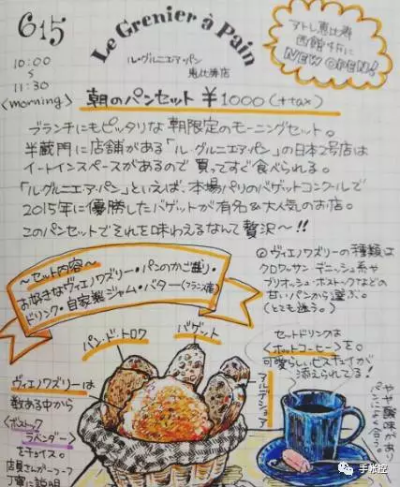 615
10:00
11:30
(morning)
Le Grenier à Pain
ル・グルニエ・ア・パン
恵比寿店
アトレ恵比寿
西館4Fに
NEW OPEN!
朝のパンセット ¥1000(+tax)
ブランチにもピッタリな朝限定のモーニングセット。
半蔵門に店舗がある「ル・グルニエアパン」の日本2号店は
イートインスペースがあるので買ってすぐ食べられる。
「ルグルニエアパン」といえば、本場パリのバゲットコンクールで
2015年に優勝したバゲットが有名&大人気のお店。
このパンセットでそれを味わえるなんて贅沢〜!!
〜セット内容〜
お好きなヴィエノワズリー・パンのかご盛り・
ドリンク・自家製ジャム・バター(フランス産)
ヴィエノワズリーの種類は
クロワッサン デニッシュ系や
ブリオッシュ・ボストックなどの
甘いパンから選ぶ。
(とても迷う。)
パン・ド・ロワ
バゲット
セットドリンクは
〈ホットコーヒー〉を。
可愛らしいビスキュイが
添えられてる!
やや酸味があり
ヴィエノワズリーは
数ある中から
〈ボストック
ラベンダー〉
をチョイス。
店員さんが一つ一つ
丁寧に説明
手帐控